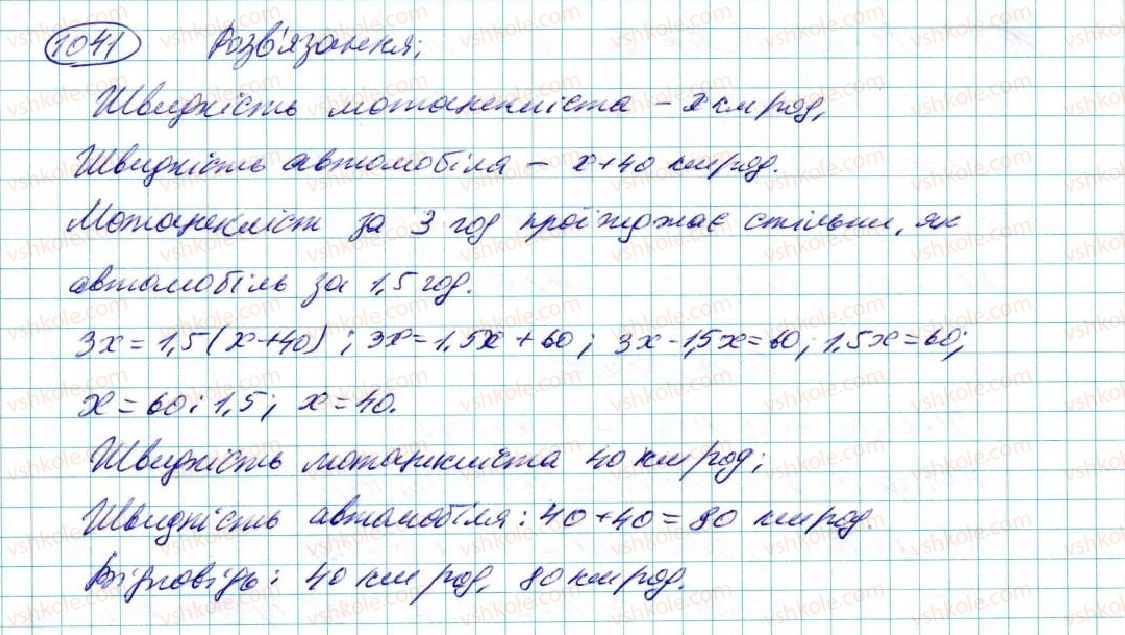 1041 Розв'язання;
Швидкість мотоцикліста – x км год,
Швидкість автомобіля – x+40 км год.
Мотоцикліст за 3 год проїжджає стільки, як
автомобіль за 1,5 год.
3x = 1,5(x+40); 3x = 1,5x + 60; 3x - 1,5x = 60; 1,5x = 60;
x = 60 : 1,5; x = 40.
Швидкість мотоцикліста 40 км год;
Швидкість автомобіля: 40+40 = 80 км год.
Відповідь: 40 км год, 80 км год.